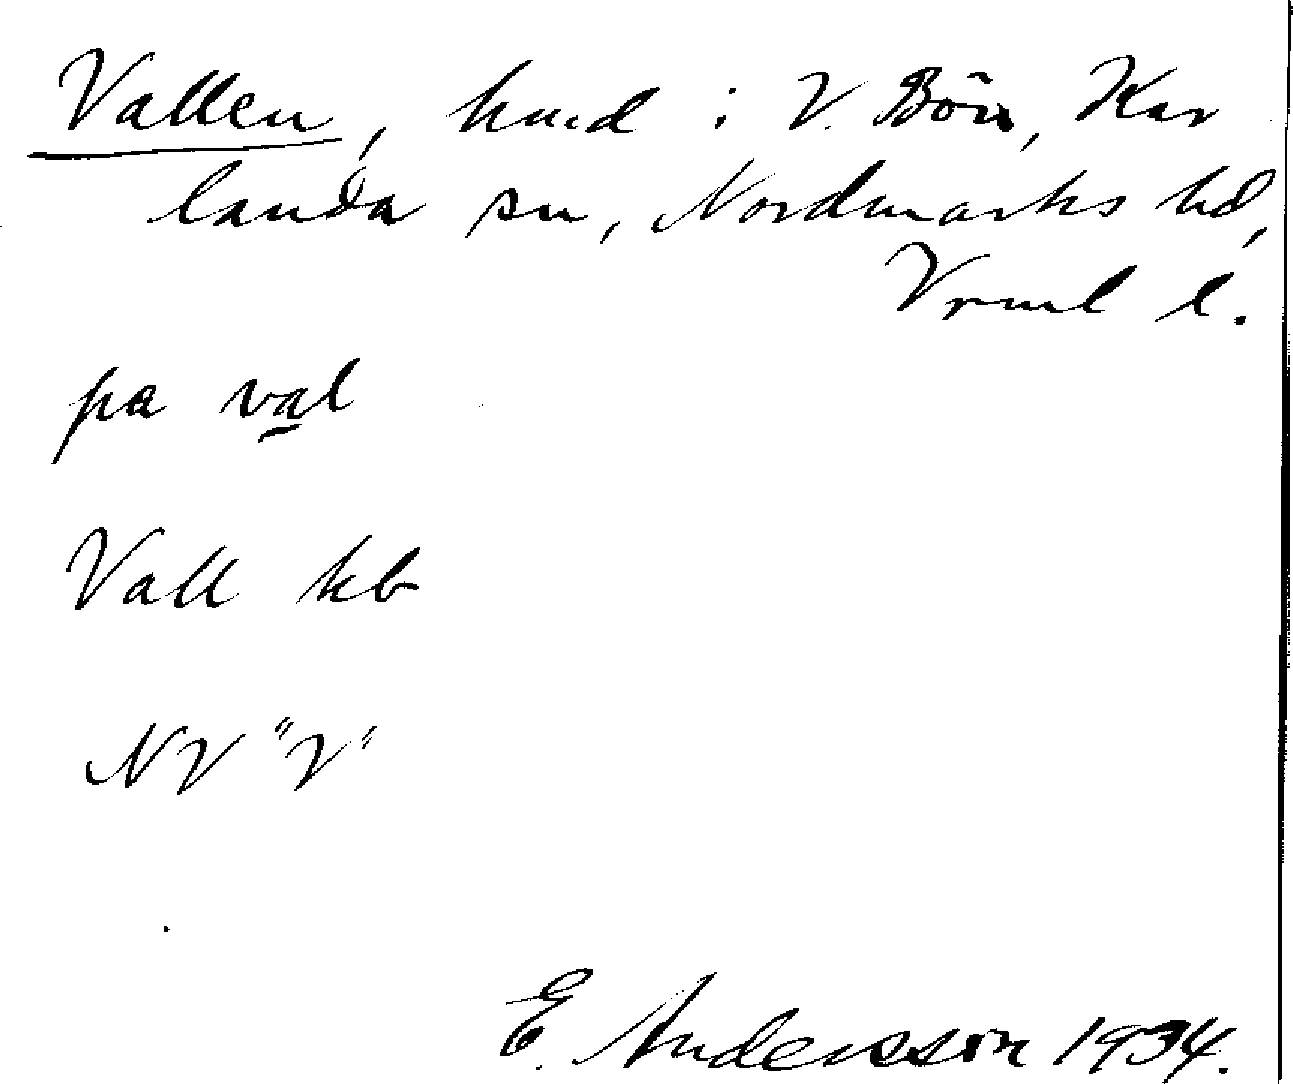 Vallen, hmd i V. Bön, Kar
landa sn, Nordmarks hd,
Vrml l.
pa val
Vall kb
NV "V"
E. Andersson 1934.